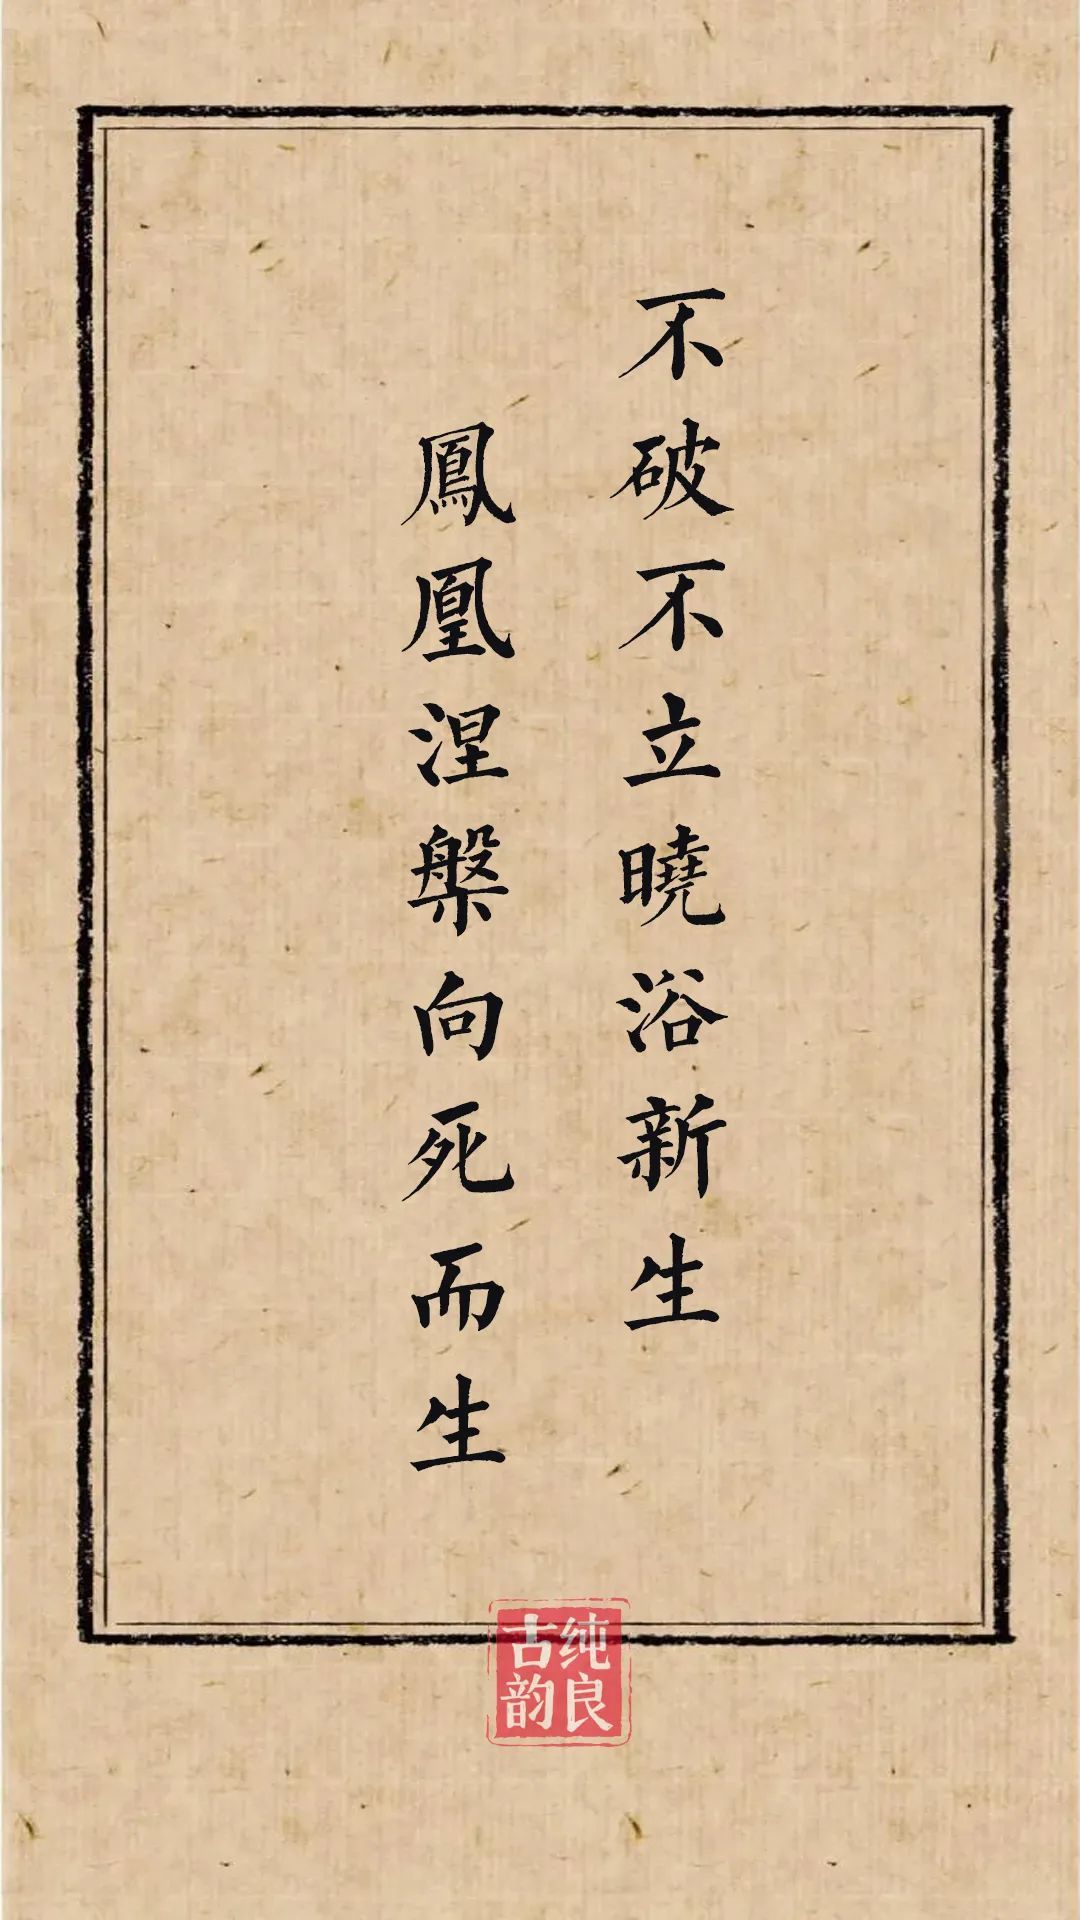 不破不立曉浴新生
鳳凰涅槃向死而生
纯良
古韵